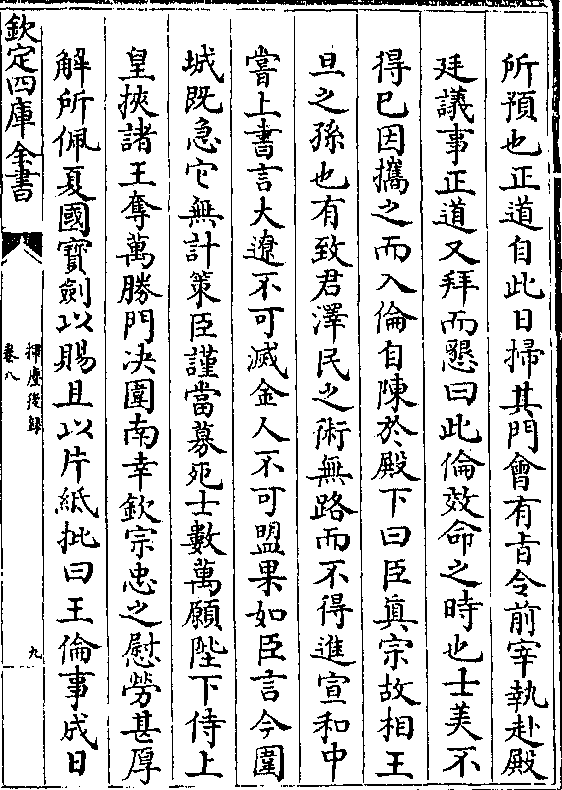 所預也正道自此日掃其門會有旨令前宰執赴殿
廷議事正道又拜而懇曰此倫效命之時也士美不
得已因攜之而入倫自陳於殿下曰臣真宗故相王
旦之孫也有致君澤民之術無路而不得進宣和中
嘗上書言大遼不可滅金人不可盟果如臣言今圍
城既急它無計策臣謹當募死士數萬願陛下侍上
皇挾諸王奪萬勝門决圍南幸欽宗忠之慰勞甚厚
解所佩夏國寶劍以賜且以片紙批曰王倫事成日
欽定四庫全書
揮麈後録
卷八
九